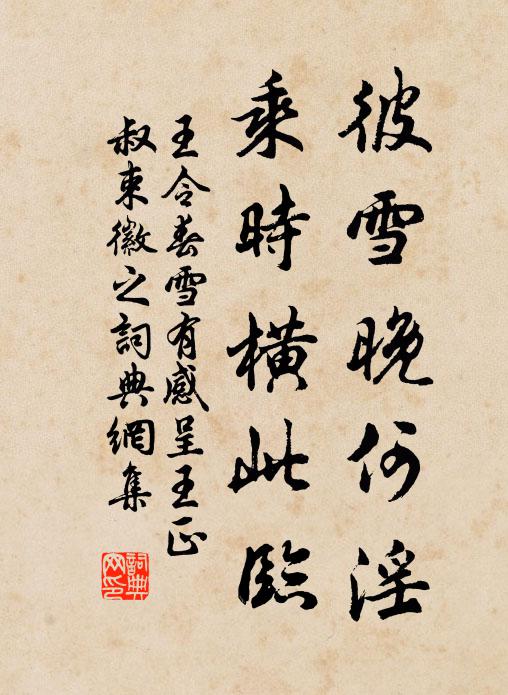 彼雪晚何淫
乘時橫此臨
王令春雪有感呈王正
叔束徽之詞典網集
詞典
网印